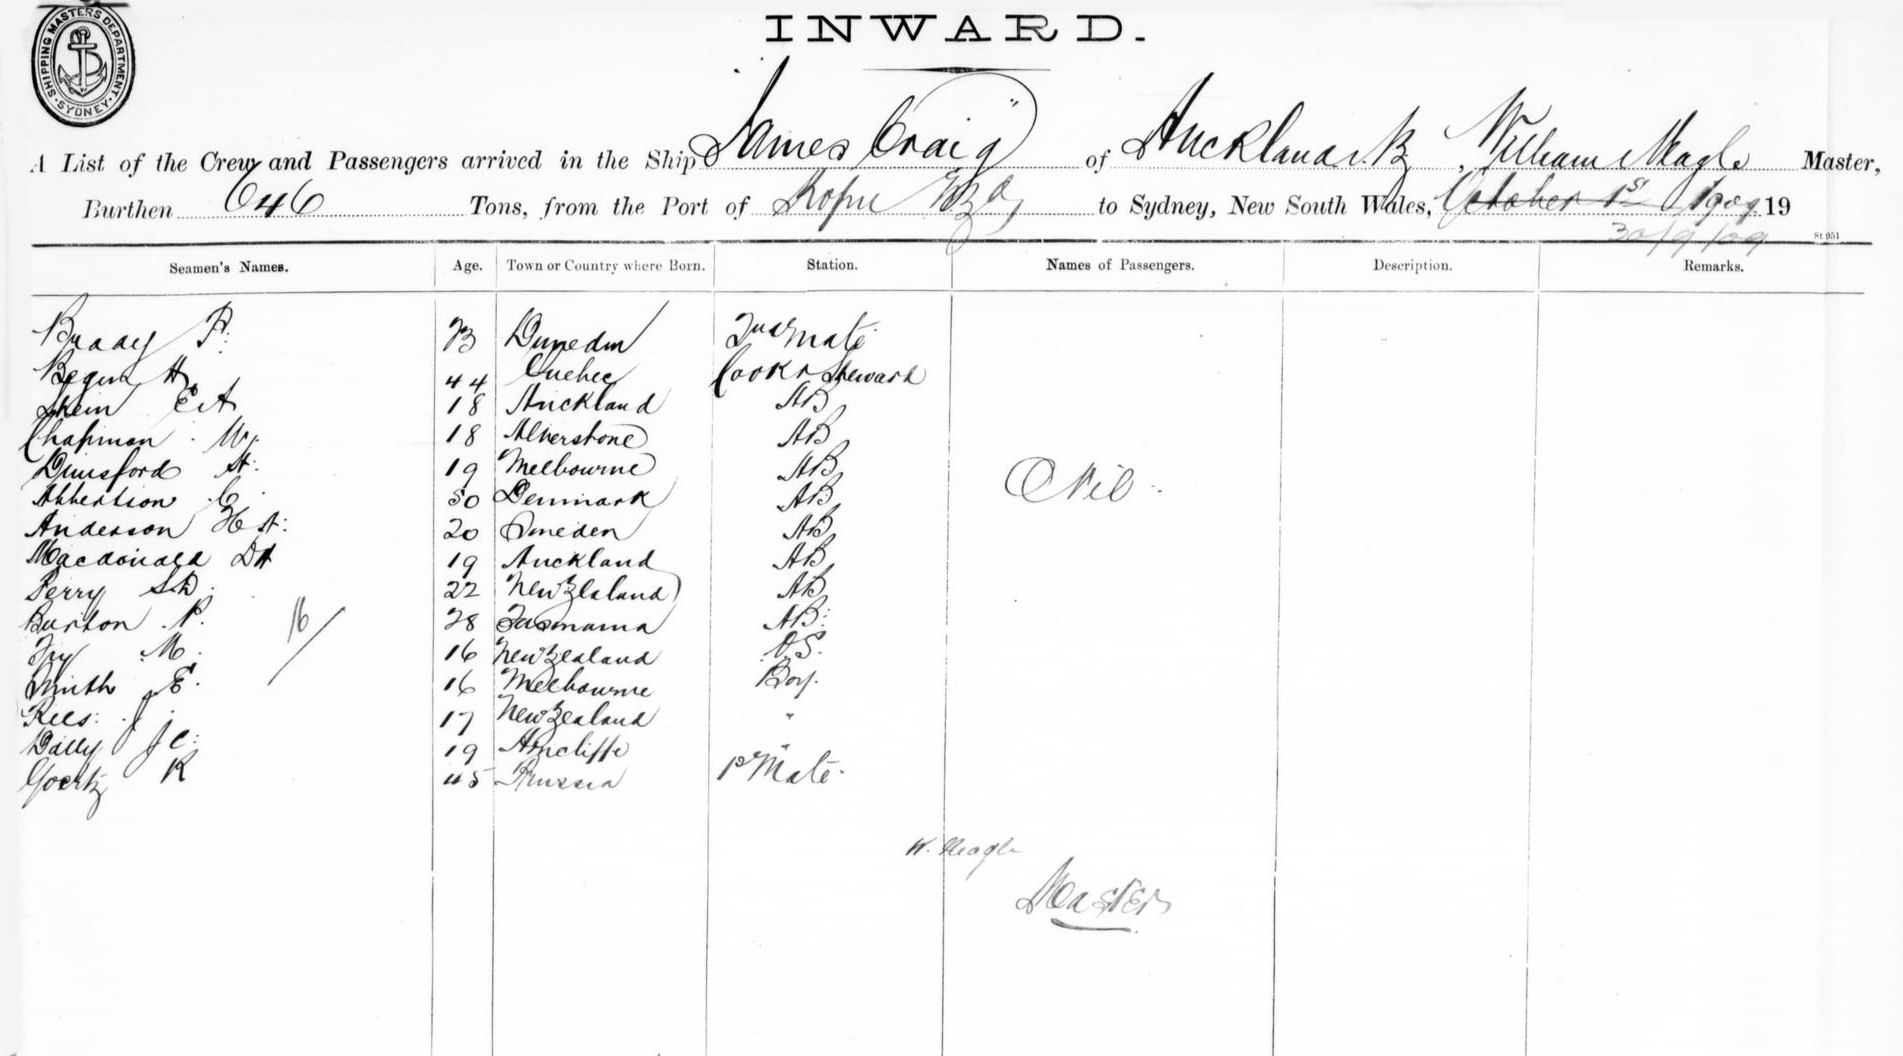 SHIPPING MASTERS DEPARTMENT. SYDNEY.
INWARD.
A List of the Crew and Passengers arrived in the Ship "James Craig" of Auckland N.Z, William Meagle Master,
Burthen 646 Tons, from the Port of Kopu to Sydney, New South Wales, October 1st 1909. 19
30/9/09
St 951
Seamen's Names. Age. Town or Country where Born. Station. Names of Passengers. Description. Remarks.
Brady F. 23 Dunedin 2nd Mate
H 44 Quebec Cook & Steward
Skein E A 18 Auckland AB
Chapman W. 18 Alverstone AB
Dunsford H. 19 Melbourne AB
Albertson C. 50 Denmark AB
Nil.
Anderson H A. 20 Sweden AB
Macdonald D A 19 Auckland AB
Perry S.D. 22 New Zealand AB
Burton P. 28 Tasmania AB.
16/
Fry M. 16 New Zealand O.S.
Smith E. 16 Melbourne Boy.
Rees. J. 17 New Zealand "
Dally J C. 19 Arncliffe "
Goertz R 45 Prussia 1st Mate.
W. Meagle
Master